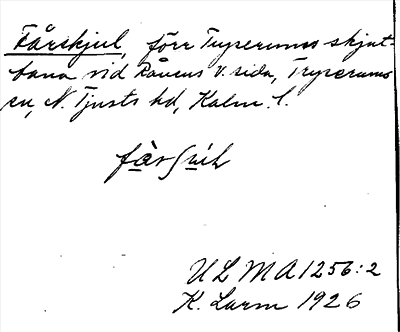 Fårskjul, förr Tryserums skjut-
bana vid Rånens v. sida, Tryserums
sn, N. Tjusts hd, Kalm. l.
ULMA 1256:2
K. Larm 1926